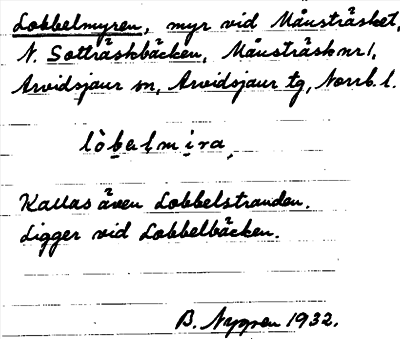 Lobbelmyren, myr vid Månsträsket,
N. Sotträskbäcken, Månsträsk nr 1,
Arvidsjaur sn, Arvidsjaur tg, Norrb. l.
lòbəlmira,
Kallas även Lobbelstranden.
Ligger vid Lobbelbäcken.
B. Nygren 1932.